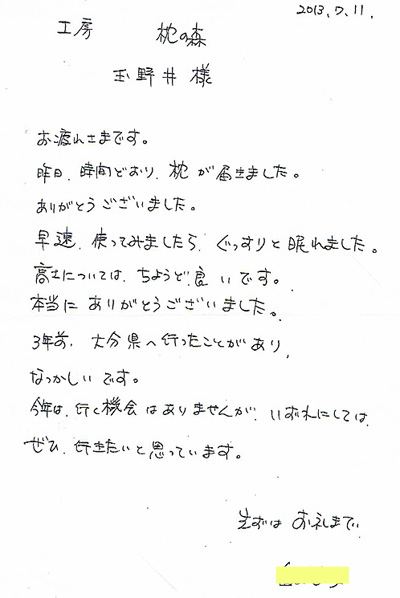 2013.7.11.
工房 枕の森
玉野井 様
お疲れさまです。
昨日、時間どおり、枕が届きました。
ありがとうございました。
早速、使ってみましたら、ぐっすりと眠れました。
高さについては、ちょうど良いです。
本当に ありがとうございました。
3年前、大分県へ行ったことがあり、
なつかしいです。
今年は、行く機会はありませんが、いずれにしては、
ぜひ、行きたいと思っています。
先ずは お礼まで。